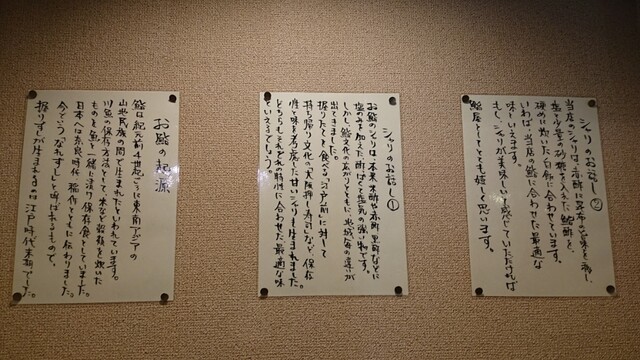 お鮨の起源
鮨は紀元前4世紀ごろに東南アジアの
山地民族の間で生まれたといわれています。
川魚の保存方法として、米など穀類を炊いた
ものを魚と一緒に漬け保存食としていました。
日本へは奈良時代、稲作とともに伝わりました。
今でいう"なれずし"と呼ばれるもので、
握りずしが生まれるのは江戸時代末期でした。
シャリのお話し①
お鮨のシャリは、本来、米酢や赤酢、黒酢などに
塩のみを加えた、酢っぱくて塩気の強い物です。
しかし、鮨文化の広がりとともに、地域毎の違いが
出てきました。
握りたてを食べる「江戸前」に対して
持ち帰り文化の「大阪押し寿司」など、保存
性と味を考慮した甘いシャリも生まれました。
どちらもそれぞれの特性に合わせた最適な味
といえるでしょう。
シャリのお話し②
当店のシャリは、赤酢に昆布の旨味を移し、
塩と少量の砂糖を入れた鮨酢を、
硬めに炊いた白飯に合わせています。
いわば、当店の鮨に合わせた最適な
味といえます。
もし、シャリが美味しいと感じていただければ
鮨屋としてとても嬉しく思います。